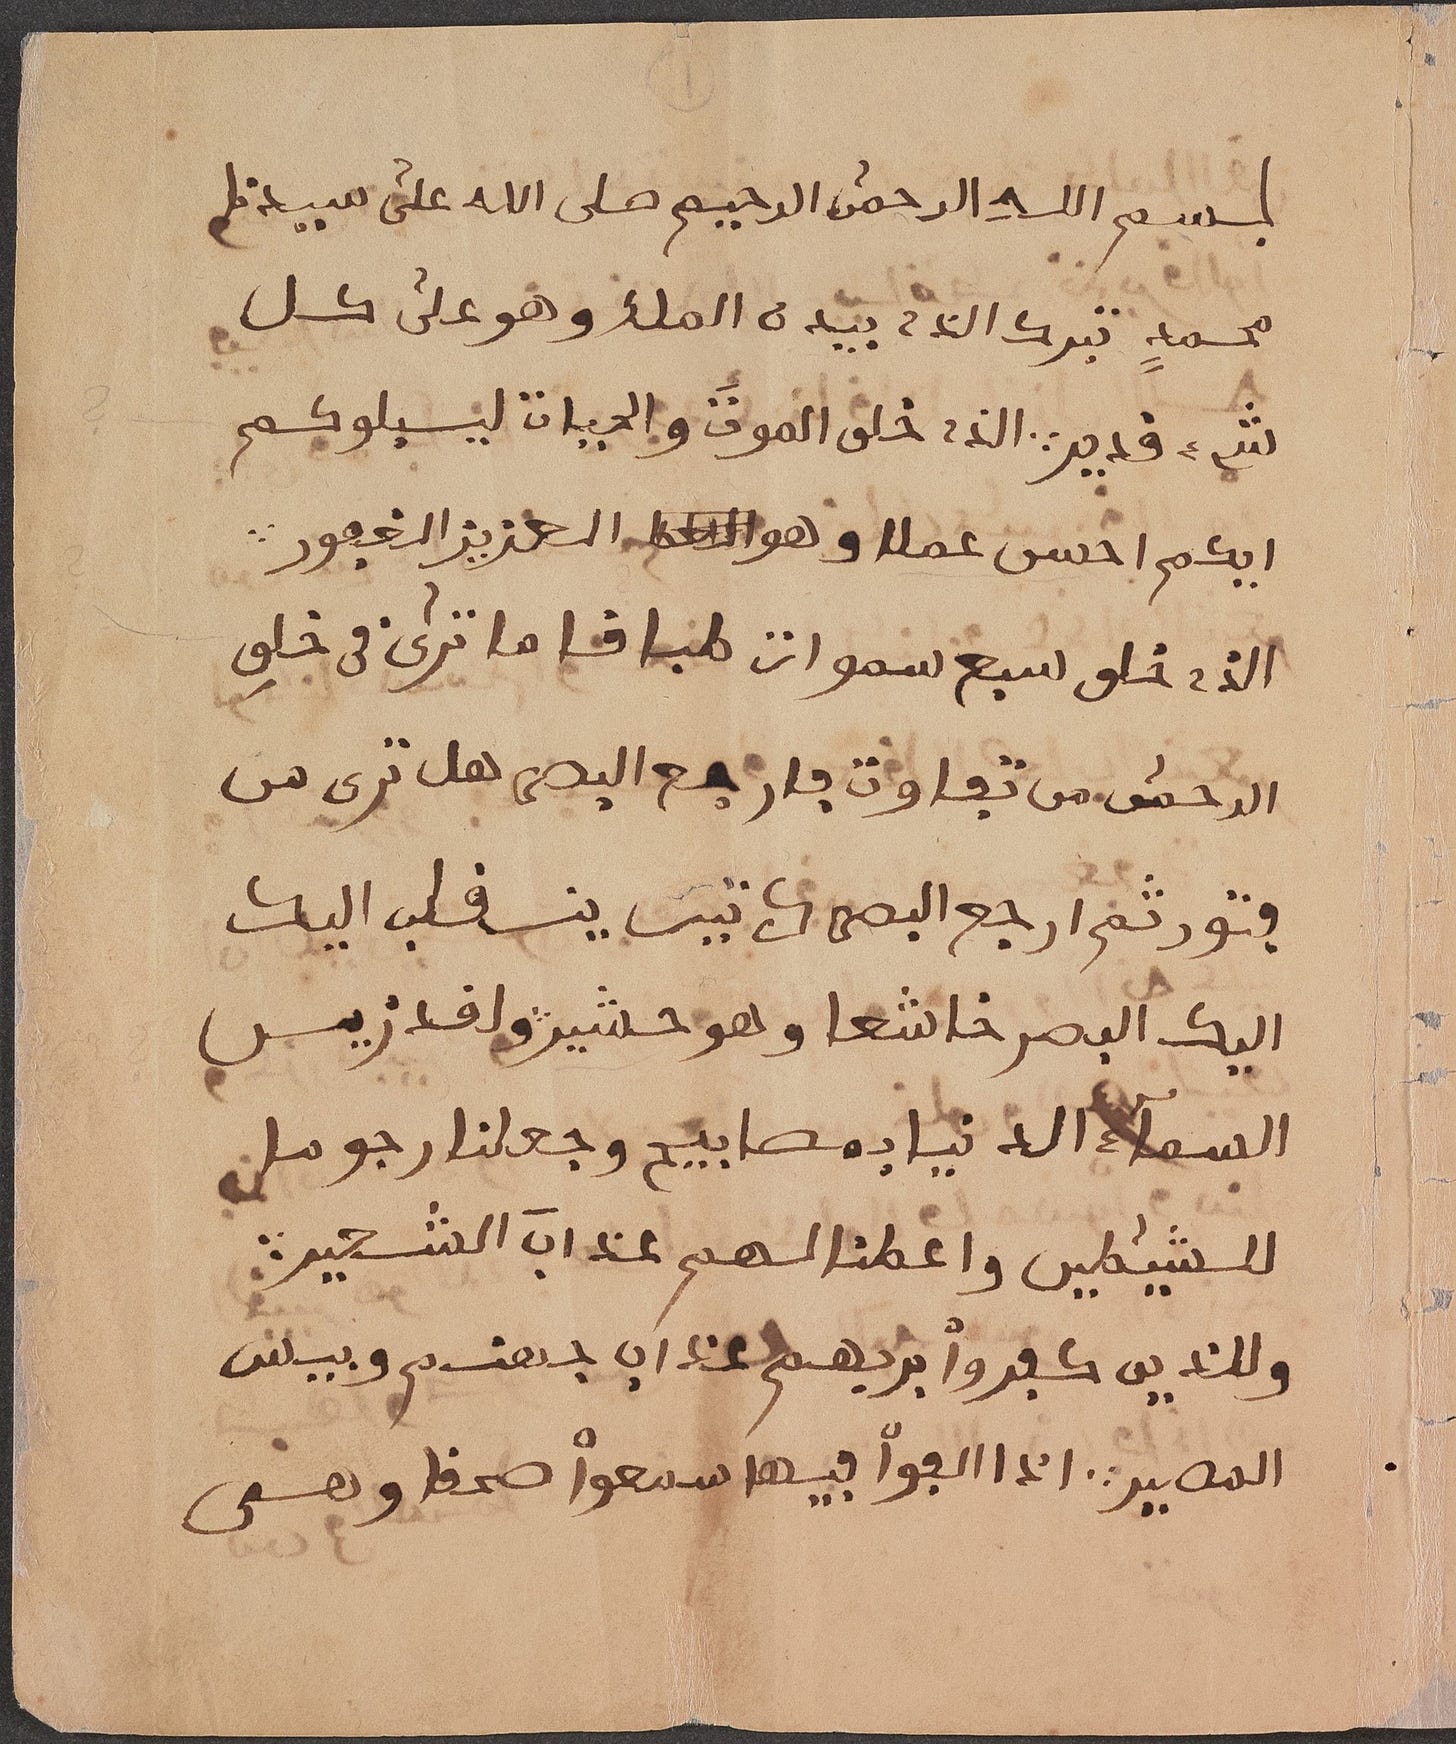 بسم الله الرحمن الرحيم صلى الله على سيدنا
محمدٍ تبرك الذي بيده الملك وهو على كل
شيء قدير الذي خلق الموتَ والحيات ليسبلوكم
ايكم احسن عملا وهو العزيز الغفور
الذي خلق سبع سموات طباقا ما ترى في خلقِ
الرحمن من تفاوت فارجع البصر هل ترى من
فتور ثم ارجع البصر كرتين ينسقلب اليك
اليك البصر خاشعا وهو حشير ولقد زين
السمآء الدنيا بمصابيح وجعلنا رجوما
للشيطين واعطنا لهم عذابَ الشعير
وللذين كفروا بربهم عذاب جهنم وبيس
المصير اذا الفوا فيها سمعوا صحفا وهسى